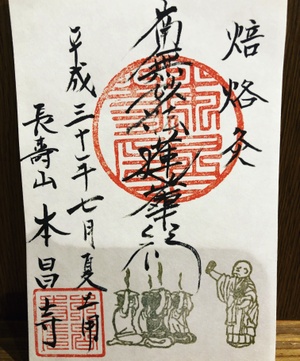 焙烙灸
南無妙法蓮華経
平成三十一年七月夏土用
長壽山 本昌寺